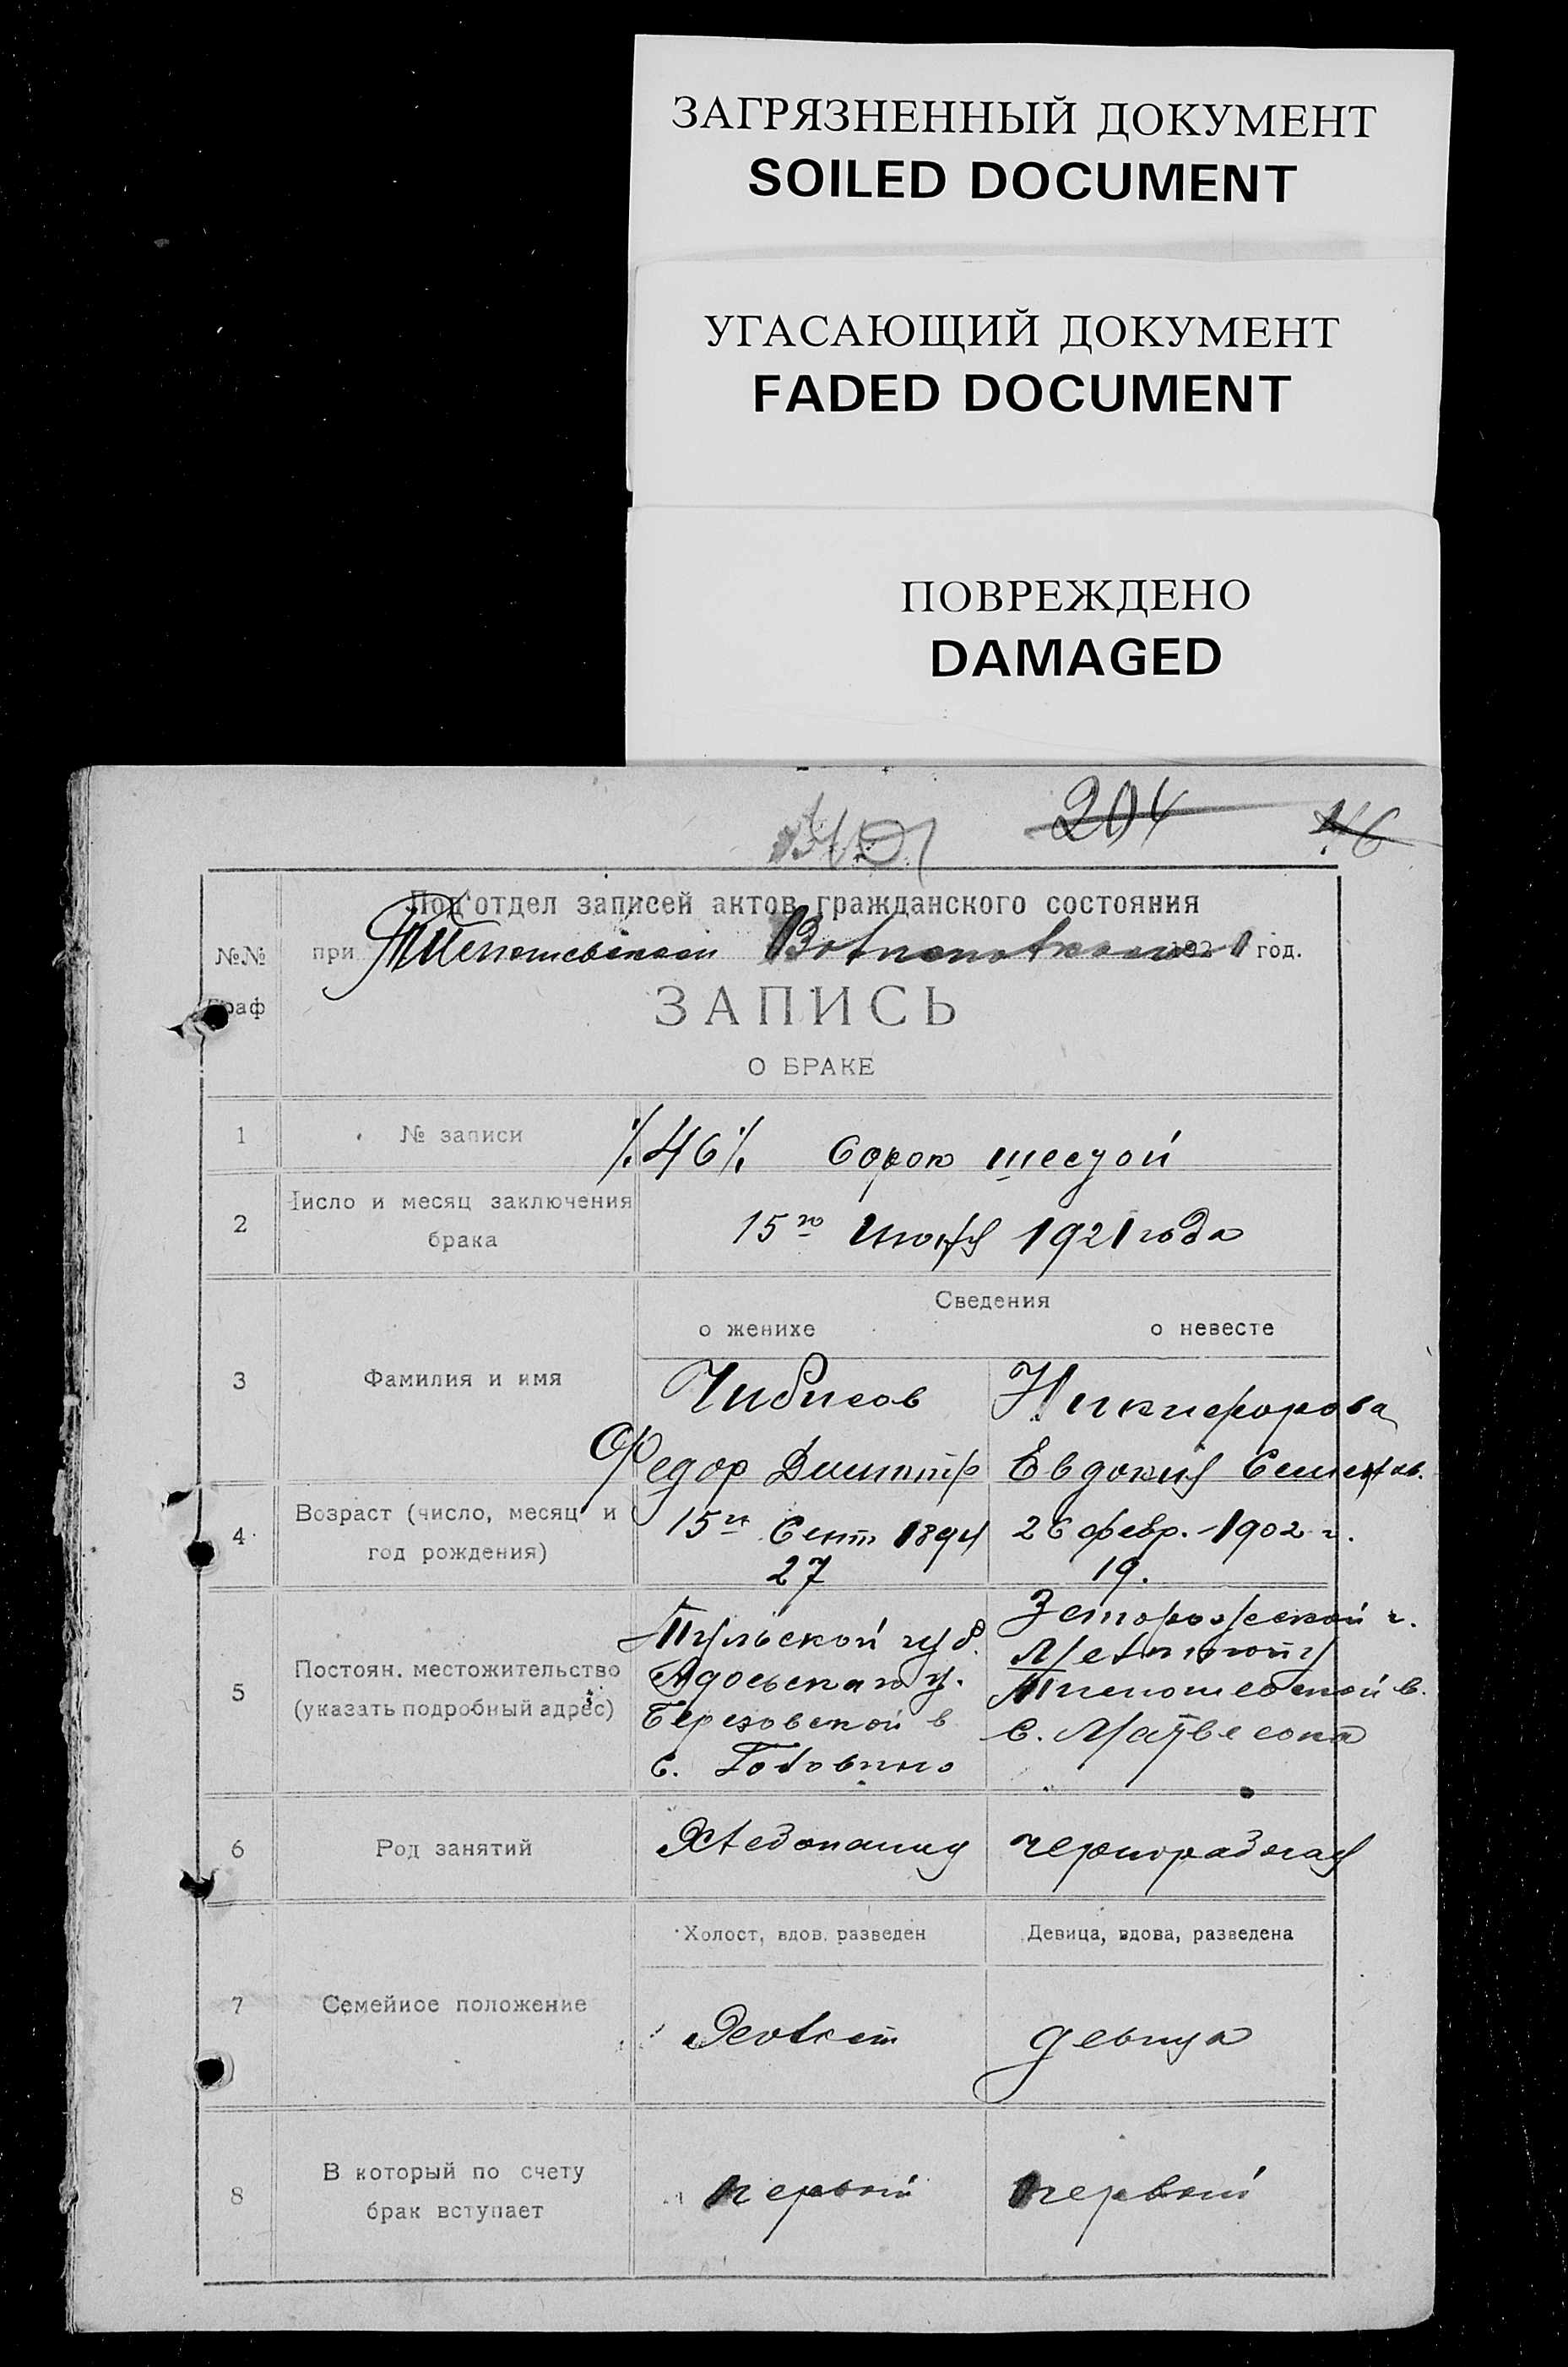 ЗАГРЯЗНЕННЫЙ ДОКУМЕНТ
SOILED DOCUMENT
УГАСАЮЩИЙ ДОКУМЕНТ
FADED DOCUMENT
ПОВРЕЖДЕНО
DAMAGED
204
46
№№ граф
Под'отдел записей актов гражданского состояния
при 1921 год.
ЗАПИСЬ
О БРАКЕ
1 № записи 46 Сорок шестой
2 Число и месяц заключения брака 15го 1921 года
3 Фамилия и имя
Сведения
о женихе о невесте
Чибисов Никифорова
Федор Димитр Евдокия Семенов.
4 Возраст (число, месяц и год рождения)
15го Сент 1894 26 февр. 1902 г.
27 19.
5 Постоян. местожительство (указать подробный адрес)
Тульской губ. Запорожской г.
Адоевскаго у. Мелитопол у
Березовской в Тимошевской в.
с. Говоренки с. Матвеевка
6 Род занятий Хлебопашец чернорабочая
7 Семейное положение
Холост, вдов. разведен Девица, вдова, разведена
Холост девица
8 В который по счету брак вступает
первый первый